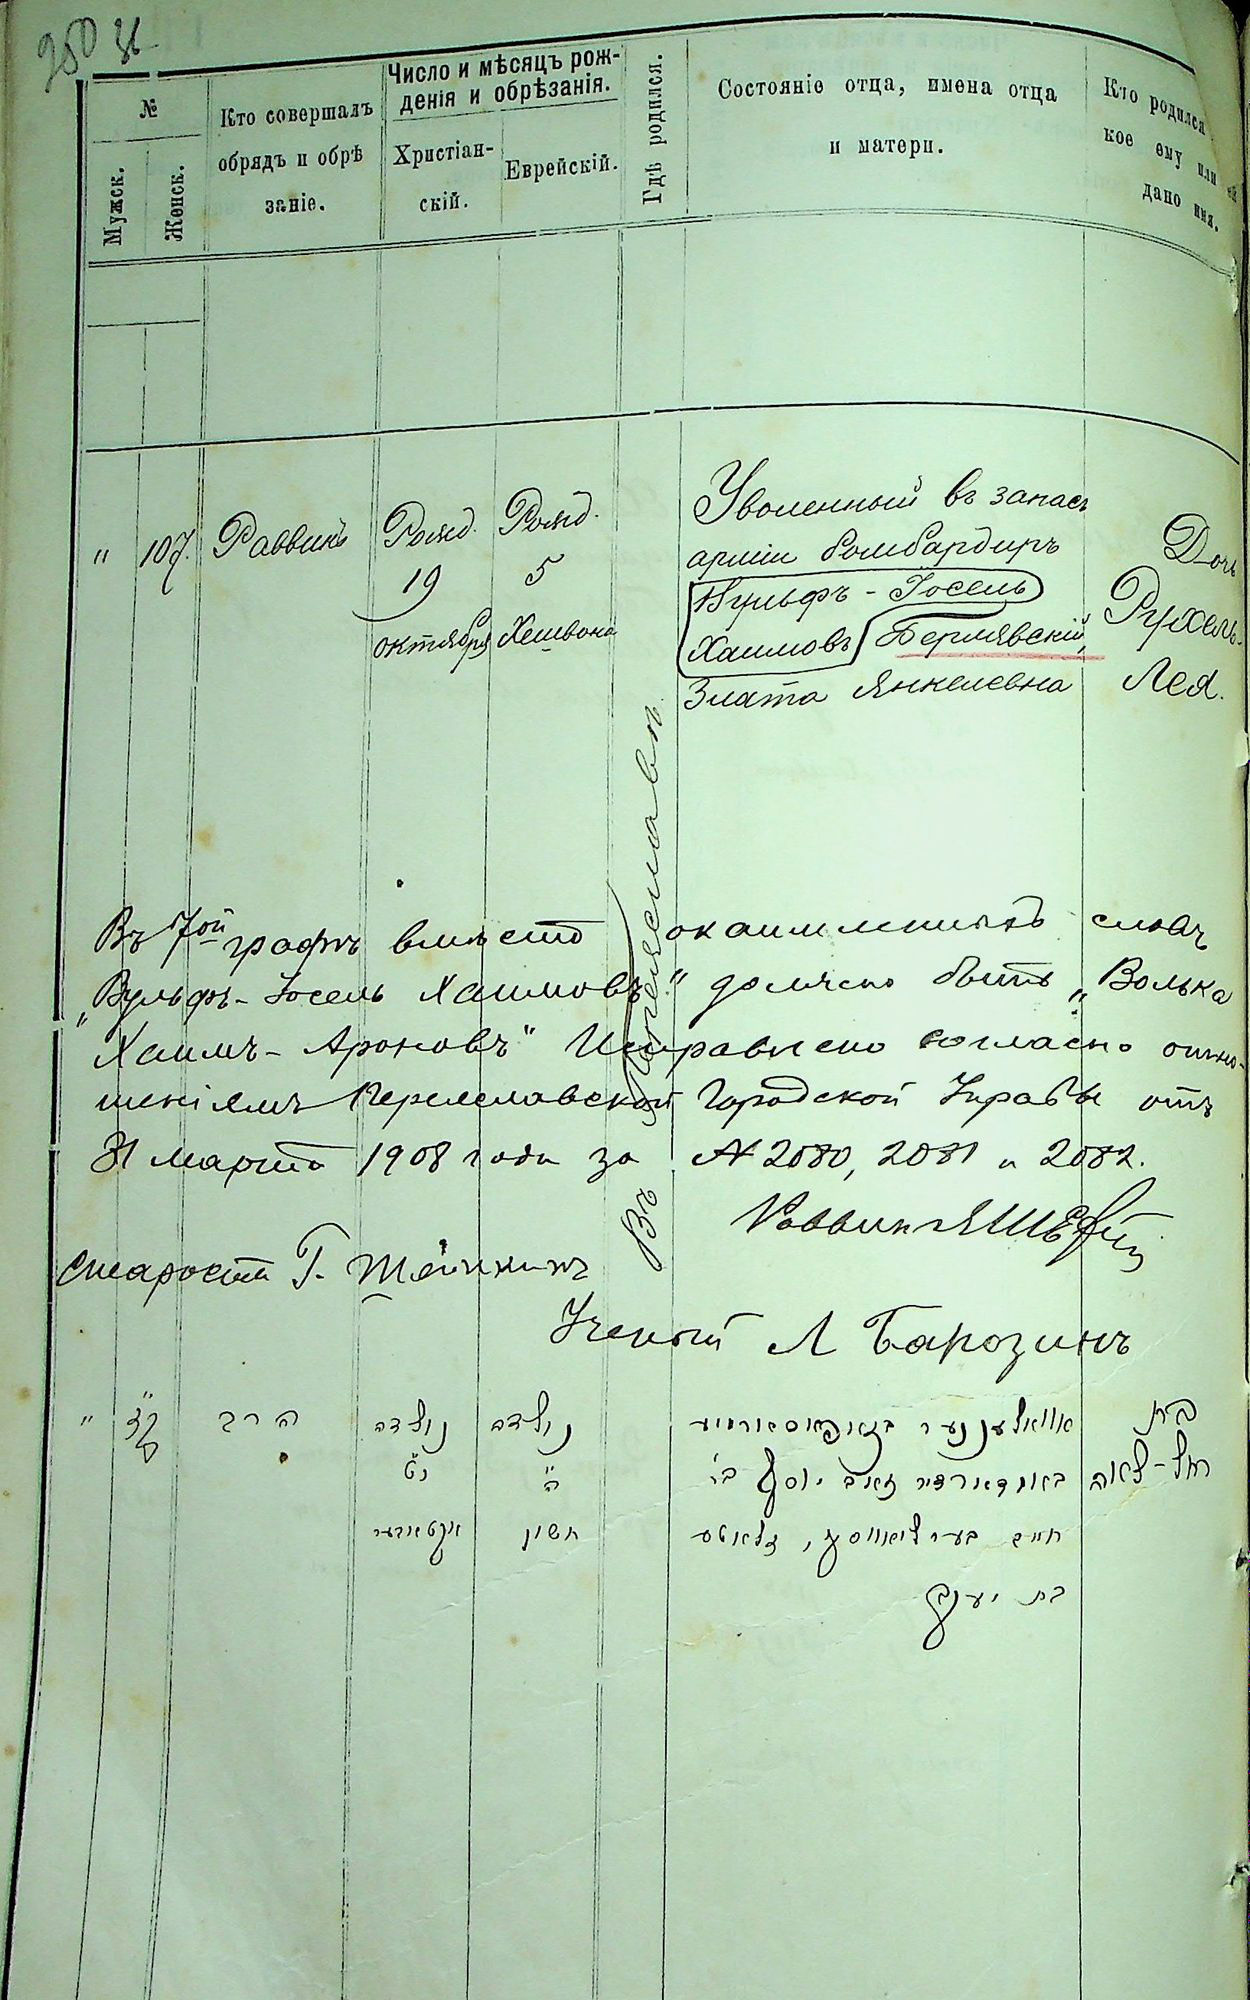 №
Мужск.
Женск.
Кто совершалъ
обрядъ и обрѣ
заніе.
Число и мѣсяцъ рож-
денія и обрѣзанія.
Христіан-
скій.
Еврейскій.
Гдѣ родился.
Состояніе отца, имена отца
и матери.
Кто родился
кое ему или ей
дано имя.
" 107. Раввинъ
Рожд.
19
октября
Рожд.
5
Хешвона
Въ Переяславѣ
Уволенный въ запасъ
арміи бомбардиръ
Вульфъ-Іосель
Хаимовъ Бермявскій,
Злата Янкелевна
Дочь
Рухель-
Лея.
Въ 7ой графѣ вмѣсто окаймленныхъ словъ
„Вульфъ-Іосель Хаимовъ" должно быть „Волька
Хаимъ-Ароновъ" Исправлено согласно отно-
шеніямъ Переяславской Городской Управы отъ
31 марта 1908 года за № 2080, 2081 и 2082.
Раввинъ
Староста Г.
Ученый Л Барозинъ
" קז הרב
נולדה
יט
אקטאבער
נולדה
ה
חשון
באמבארדיר זאב יוסף בר
חיים בערליאווסקי, זלאטע
בת יעקב
בת
רחל-לאה